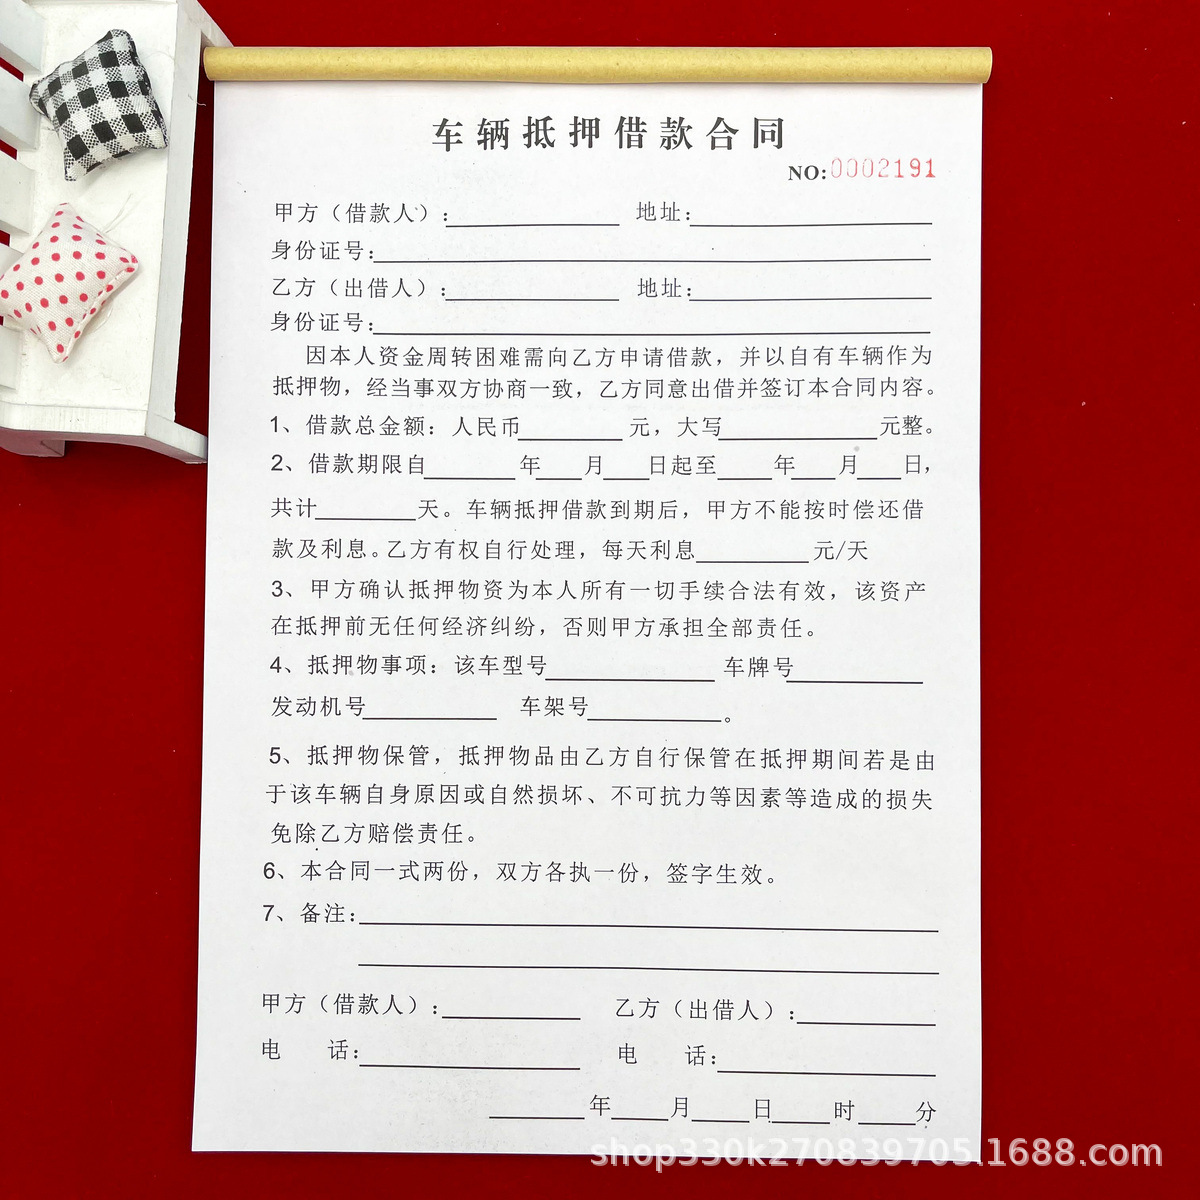 车辆抵押借款合同
NO:0002191
甲方（借款人）：________ 地址：________
身份证号：________
乙方（出借人）：________ 地址：________
身份证号：________
因本人资金周转困难需向乙方申请借款，并以自有车辆作为
抵押物，经当事双方协商一致，乙方同意出借并签订本合同内容。
1、借款总金额：人民币________元，大写________元整。
2、借款期限自____年____月____日起至____年____月____日，
共计________天。车辆抵押借款到期后，甲方不能按时偿还借
款及利息。乙方有权自行处理，每天利息________元/天
3、甲方确认抵押物资为本人所有一切手续合法有效，该资产
在抵押前无任何经济纠纷，否则甲方承担全部责任。
4、抵押物事项：该车型号________车牌号________
发动机号________ 车架号________。
5、抵押物保管，抵押物品由乙方自行保管在抵押期间若是由
于该车辆自身原因或自然损坏、不可抗力等因素等造成的损失
免除乙方赔偿责任。
6、本合同一式两份，双方各执一份，签字生效。
7、备注：________
甲方（借款人）：________ 乙方（出借人）：________
电 话：________ 电 话：________
____年____月____日____时____分
shop330k270839705.1688.com